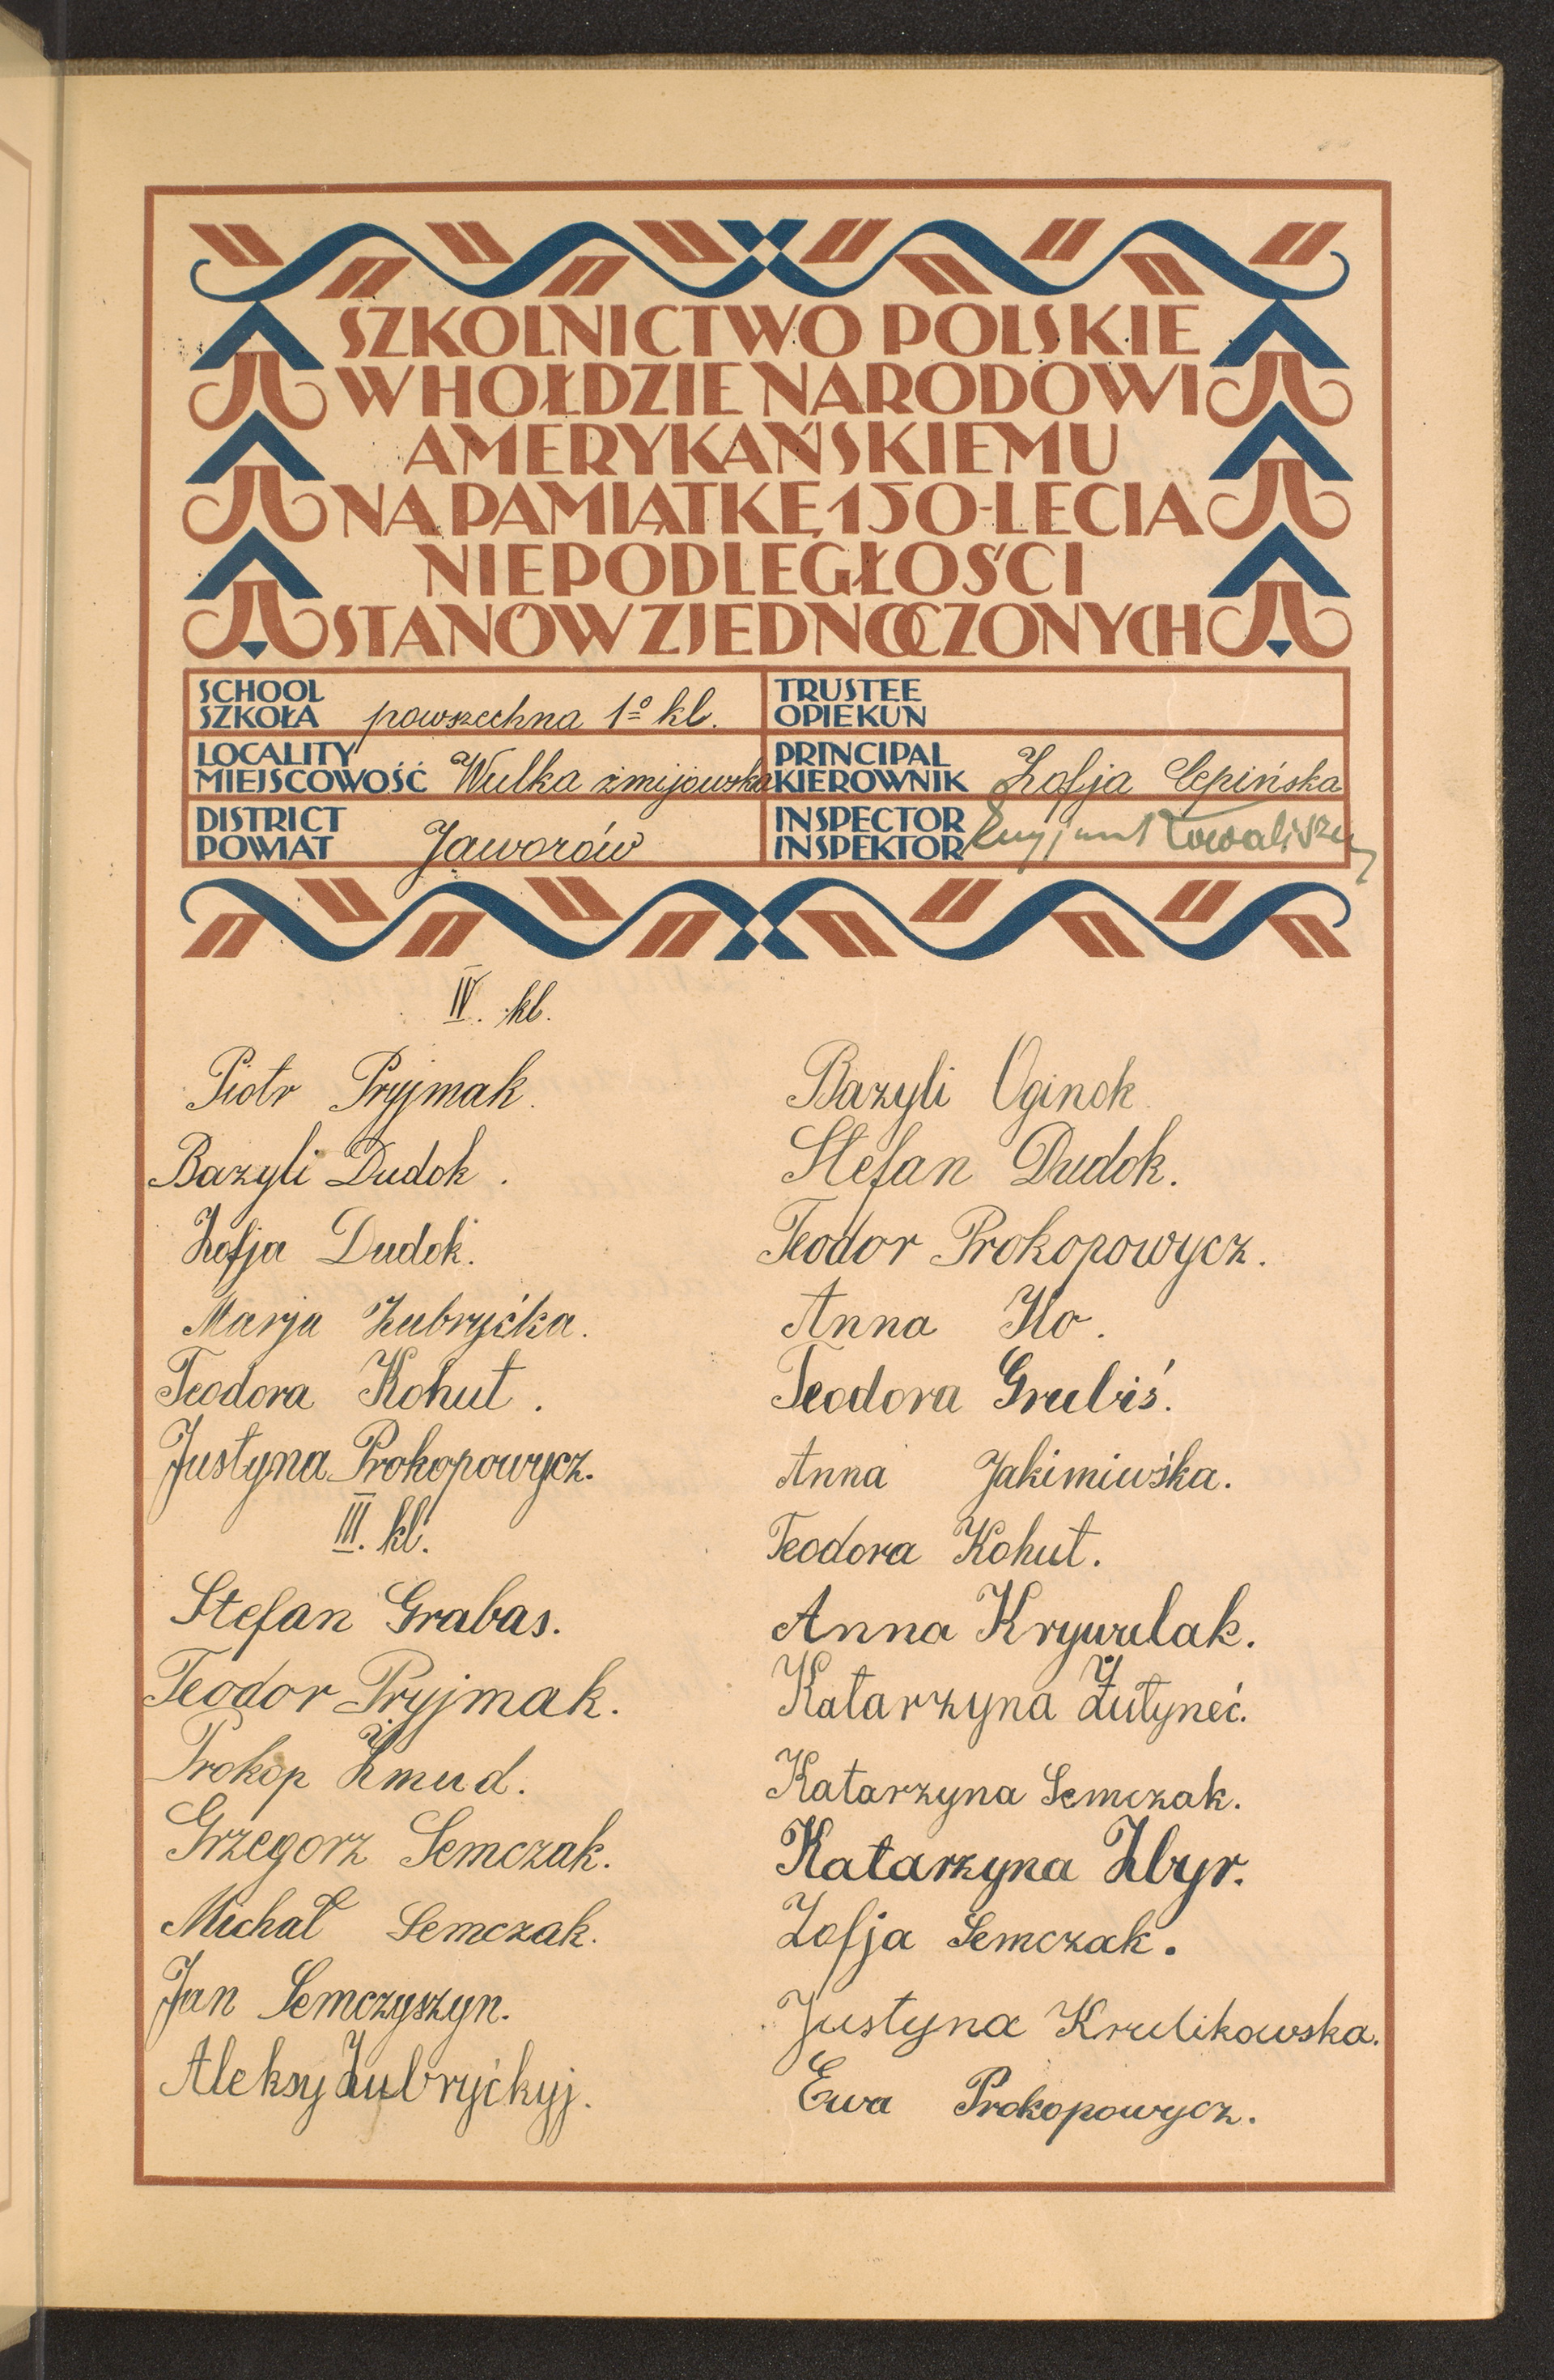 SZKOLNICTWO POLSKIE
W HOŁDZIE NARODOWI
AMERYKAŃSKIEMU
NA PAMIĄTKĘ 150-LECIA
NIEPODLEGŁOŚCI
STANÓW ZJEDNOCZONYCH
SCHOOL
SZKOŁA powszechna 1º kl.
TRUSTEE
OPIEKUN
LOCALITY
MIEJSCOWOŚĆ Wulka żmijowska
PRINCIPAL
KIEROWNIK Zofja Cepińska
DISTRICT
POWIAT Jaworów
INSPECTOR
INSPEKTOR
IV. kl.
Piotr Pryjmak.
Bazyli Dudok.
Zofja Dudok.
Marja Zubryćka.
Teodora Kohut.
Justyna Prokopowycz.
III. kl.
Stefan Grabas.
Teodor Pryjmak.
Prokop Żmud.
Grzegorz Semczak.
Michał Semczak.
Jan Semczyszyn.
Aleksy Zubryćkyj.
Bazyli Oginok
Stefan Dudok.
Teodor Prokopowycz.
Anna Ilo.
Teodora Grubiś.
Anna Jakimiuśka.
Teodora Kohut.
Anna Krywulak.
Katarzyna Żutyneć.
Katarzyna Semczak.
Katarzyna Zbyr.
Zofja Semczak.
Justyna Krulikowska.
Ewa Prokopowycz.